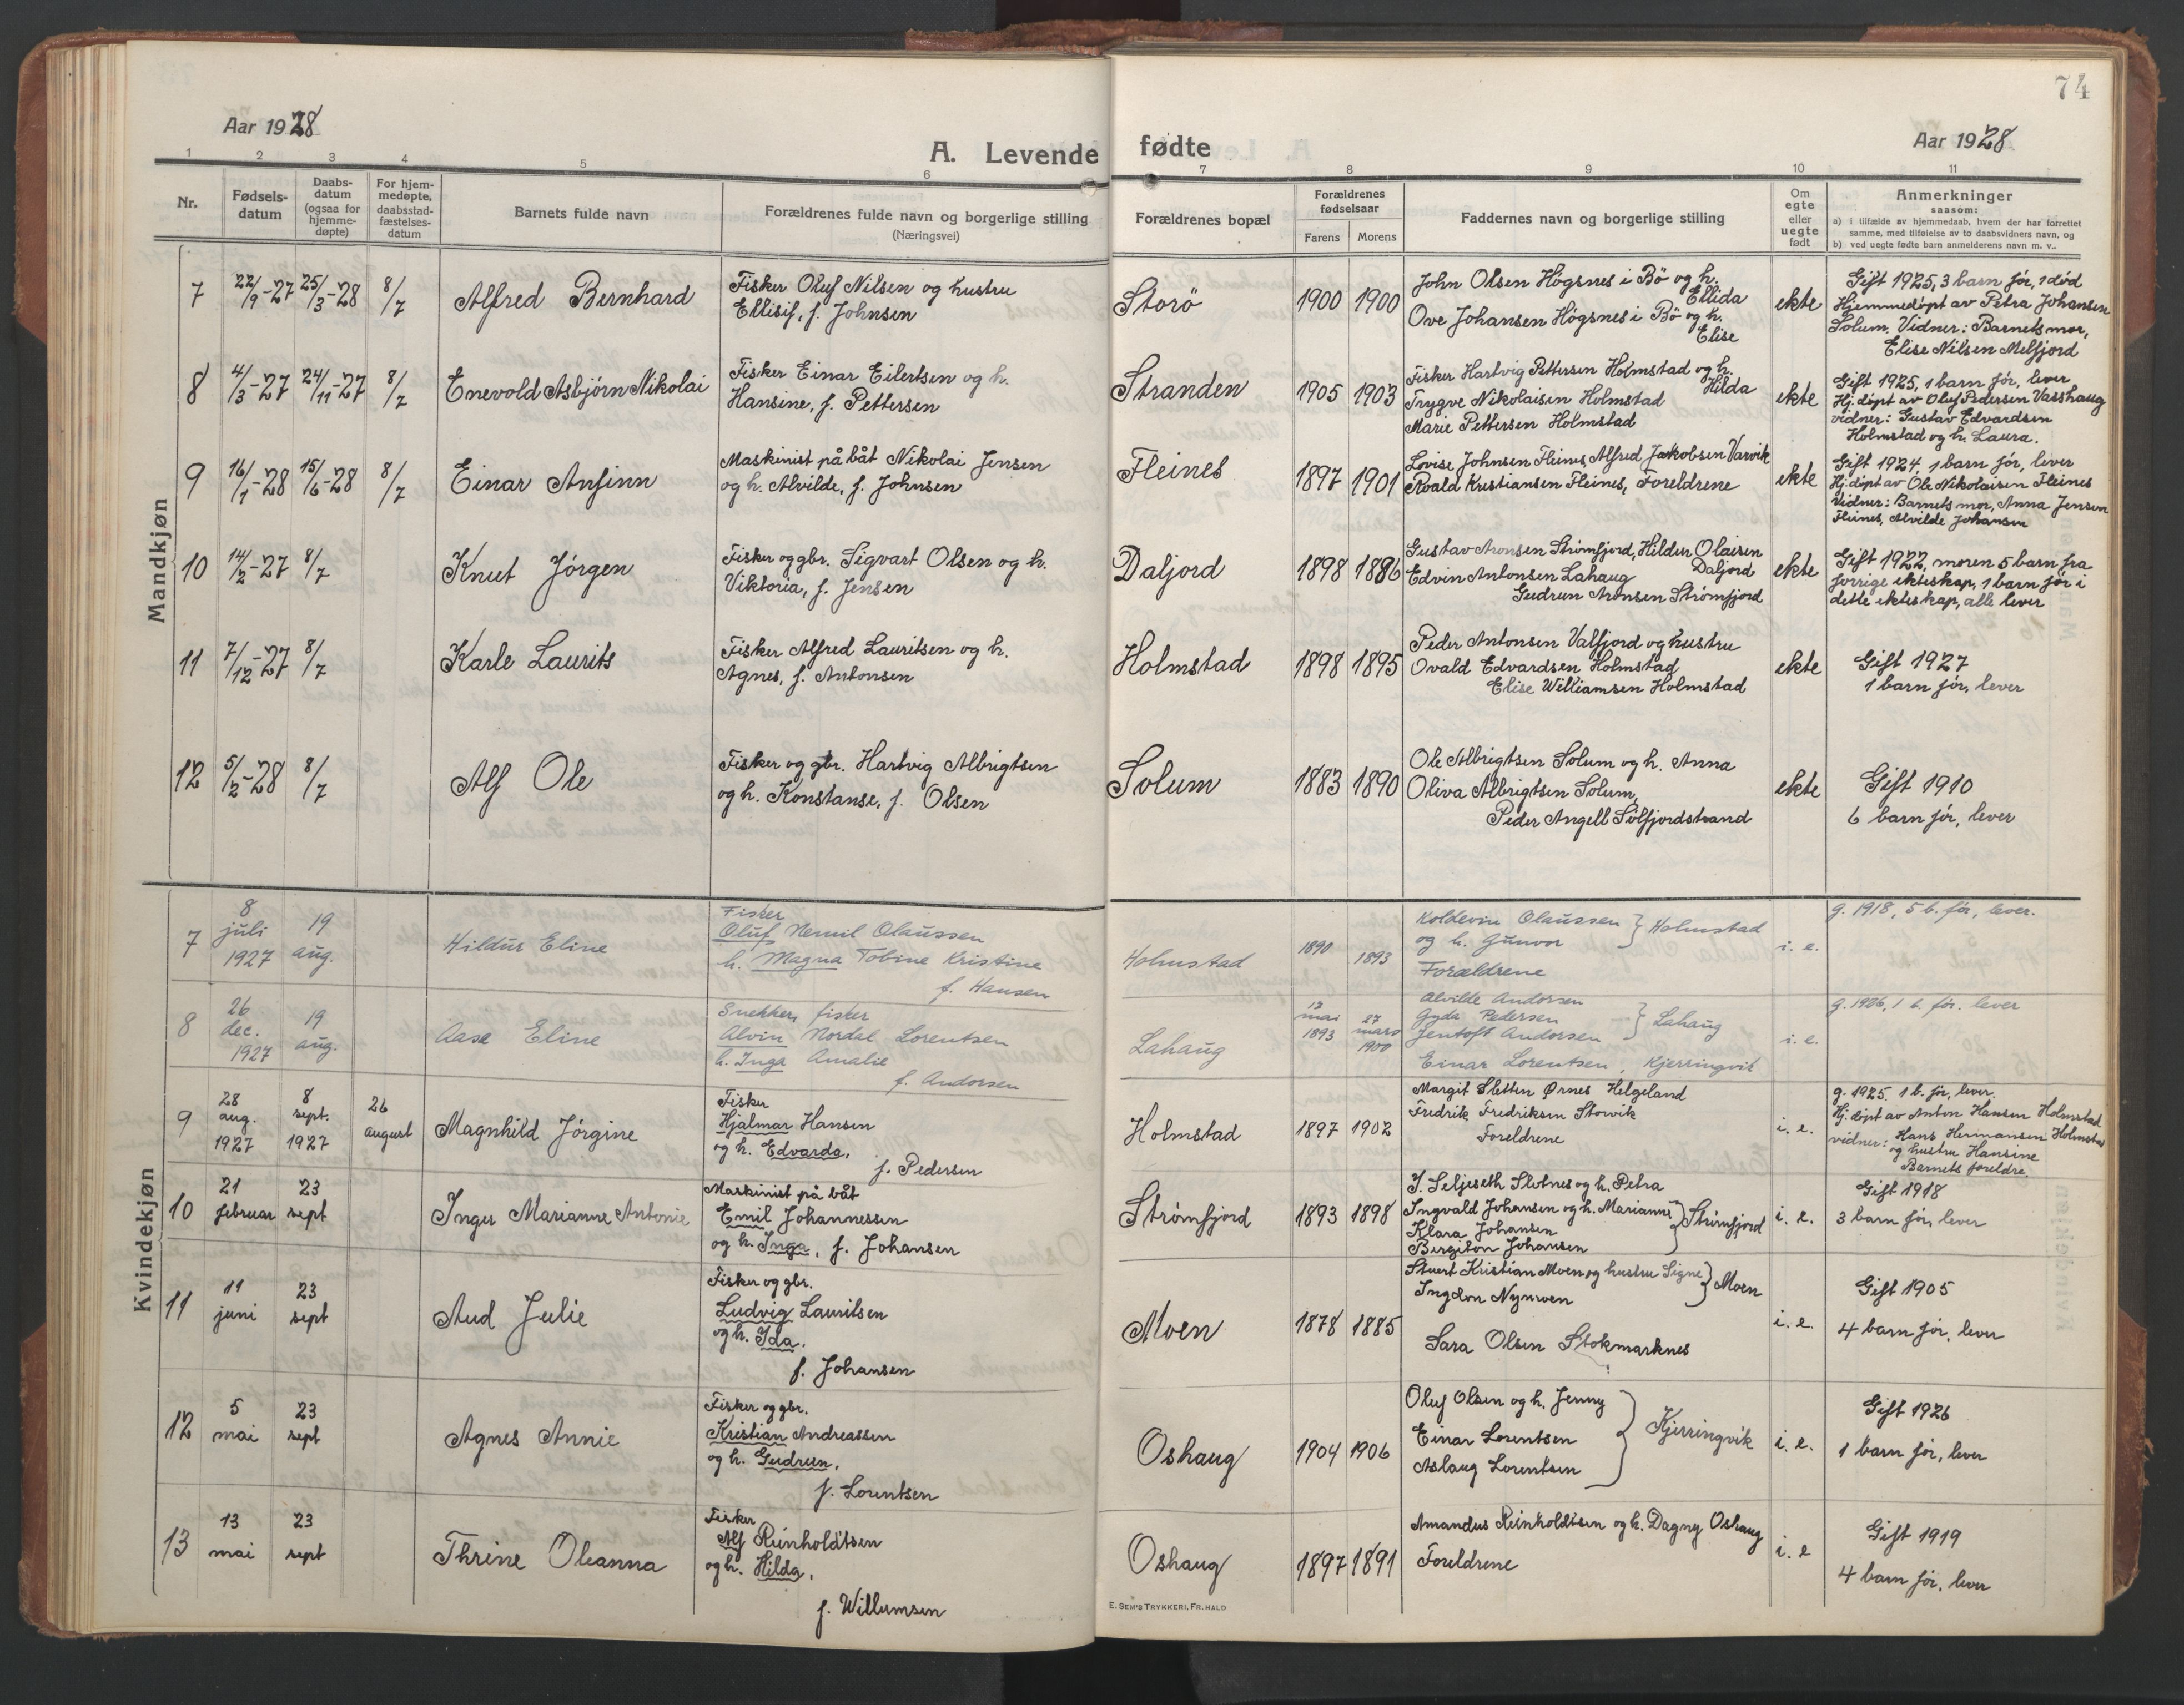 74
Aar 1928
A. Levende fødte
Aar 1928
1 2 3 4 5 6 7 8 9 10 11
Nr.
Fødsels-
datum
Daabs-
datum
(ogsaa for
hjemme-
døpte)
For hjem-
medøpte,
daabsstad-
fæstelses-
datum
Barnets fulde navn
Forældrenes fulde navn og borgerlige stilling
(Næringsvei)
Forældrenes bopæl
Forældrenes
fødselsaar
Farens Morens
Faddernes navn og borgerlige stilling
Om
egte
eller
uegte
født
Anmerkninger
saasom:
a) i tilfælde av hjemmedaab, hvem der har forrettet
samme, med tilføielse av to daabsvidners navn, og
b) ved uegte fødte barn anmelderens navn m. v..
Mandkjøn
7 22/9-27 25/3-28 8/7 Alfred Bernhard
Fisker Oluf Nilsen og hustru
Ellisif, f. Johnsen
Storö 1900 1900
John Olsen Högsnes i Bö og h.
Ellida
Ove Johansen Högsnes i Bö og h.
Elise
ekte
Gift 1925, 3 barn för, 1 död
Hjemmedöpt av Petra Johansen
Solum. Vidner: Barnets mor,
Elise Nilsen Melfjord
8 4/3-27 24/11-27 8/7 Enevold Asbjörn Nikolai
Fisker Einar Eilertsen og h.
Hansine, f. Pettersen
Stranden 1905 1903
Fisker Hartvig Pettersen Holmstad og h.
Hilda
Trygve Nikolaisen Holmstad
Marie Pettersen Holmstad
ekte
Gift 1925, 1 barn för, lever
Hj. döpt av Oluf Pedersen Vasshaug
vidner: Gustav Edvardsen
Holmstad og h. Laura.
9 16/1-28 15/6-28 8/7 Einar Anfinn
Maskinist på båt Nikolai Jensen
og h. Alvilde, f. Johnsen
Fleines 1897 1901
Lovise Johnsen Fleines, Alfred Jakobsen Varvik
Roald Kristiansen Fleines, Foreldrene
ekte
Gift 1924. 1 barn för, lever
Hj. döpt av Ole Nikolaisen Fleines
Vidner: Barnets mor, Anna Jensen
Fleines, Alvilde Johansen
10 14/2-27 8/7 Knut Jörgen
Fisker og gbr. Sigvart Olsen og h.
Viktoria, f. Jensen
Daljord 1898 1886
Gustav Aronsen Strömfjord, Hildur Olaisen
Daljord
Edvin Antonsen Lahaug
Gudrun Aronsen Strömfjord
ekte
Gift 1922, moren 5 barn fra
forrige ekteskap, 1 barn för i
dette ekteskap, alle lever
11 7/12-27 8/7 Karle Laurits
Fisker Alfred Lauritsen og h.
Agnes, f. Antonsen
Holmstad 1898 1895
Peder Antonsen Valfjord og hustru
Ovald Edvardsen Holmstad
Elise Williamsen Holmstad
ekte
Gift 1927
1 barn för, lever
12 5/2-28 8/7 Alf Ole
Fisker og gbr. Hartvig Albrigtsen
og h. Konstanse, f. Olsen
Solum 1883 1890
Ole Albrigtsen Solum og h. Anna
Oliva Albrigtsen Solum,
Peder Angell Sölfjordstrand
ekte
Gift 1910
6 barn för, lever
Kvindekjøn
7 8 juli 1927 19 aug. Hildur Eline
Fisker
Oluf Nemil Olaussen
h. Magna Tobine Kristine
f. Hansen
Holmstad 1890 1893
Koldevin Olaussen
og h. Gunvor } Holmstad
Forældrene
i. e.
g. 1918, 5 b. før, lever.
8 26 dec. 1927 19 aug. Aase Eline
Snekker, fisker
Alvin Nordal Lorentsen
h. Inga Amalie
f. Andorsen
Lahaug 12 mai 1893 27 mars 1900
Alvilde Andorsen
Gyda Pedersen
Jentoft Andorsen } Lahaug
Einar Lorentsen, Kjerringvik
i. e.
g. 1926, 1 b. før. lever
9 28 aug. 1927 8 sept. 1927 26 august Magnhild Jörgine
Fisker
Hjalmar Hansen
og h. Edvarda,
f. Pedersen
Holmstad 1897 1902
Margit Sletten Ørnes Helgeland
Fredrik Fredriksen Storvik
Foreldrene
i. e.
g. 1925. 1 b. för, lever.
Hj. döpt av Anton Hansen Holmstad
vidner: Hans Hermansen Holmstad
og hustru Hansine
Barnets foreldre.
10 21 februar 23 sept Inger Marianne Antonie
Maskinist på båt
Emil Johannessen
og h. Inga, f. Johansen
Strömfjord 1893 1898
J. Seljeseth Slotnes og h. Petra
Ingvald Johansen og h. Marianne
Klara Johansen
Birgiton Johansen } Strömfjord
i. e.
Gift 1918
3 barn för, lever
11 11 juni 23 sept Aud Julie
Fisker og gbr.
Ludvig Lauritsen
og h. Ida.
f. Johansen
Moen 1878 1885
Stuert Kristian Moen og hustru Signe
Ingdon Nymoen } Moen
Sara Olsen Stokmarknes
i. e.
Gift 1905
4 barn för, lever
12 5 mai 23 sept Agnes Annie
Fisker og gbr.
Kristian Andreassen
og h. Gudrun,
f. Lorentsen
Oshaug 1904 1906
Oluf Olsen og h. Jenny
Einar Lorentsen
Aslaug Lorentsen } Kjerringvik
i. e.
Gift 1926
1 barn för, lever
13 13 mai 23 sept Thrine Oleanna
Fisker
Alf Reinholdtsen
og h. Hilda,
f. Willumsen
Oshaug 1897 1891
Amandus Reinholdtsen og h. Dagny Oshaug
Foreldrene
i. e
Gift 1919
4 barn för, lever
E. SEM'S TRYKKERI, FR. HALD